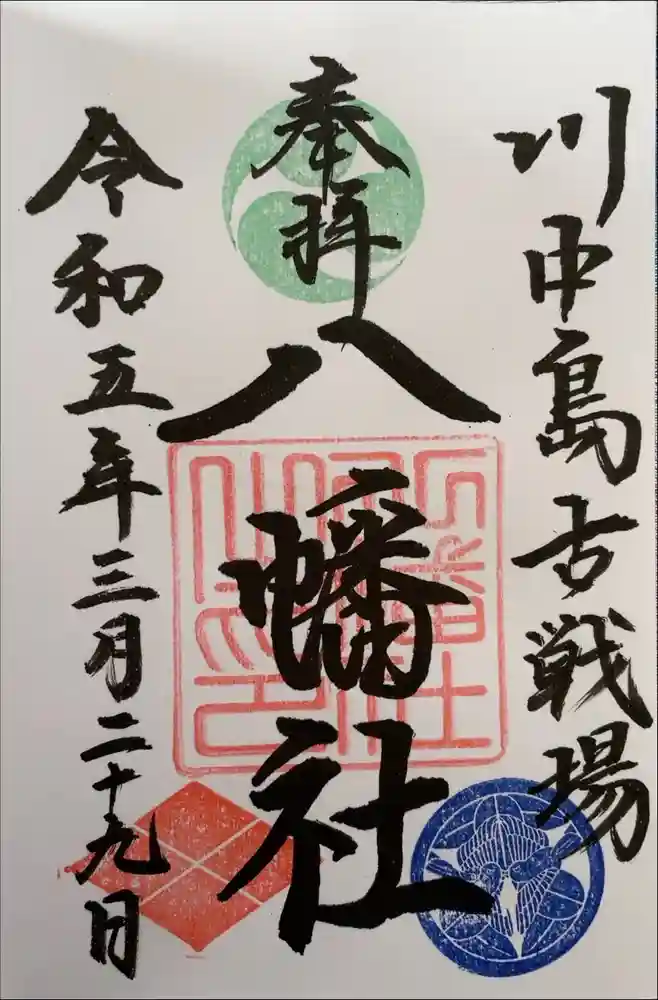 川中島古戦場
奉拝
八幡社
令和五年三月二十九日